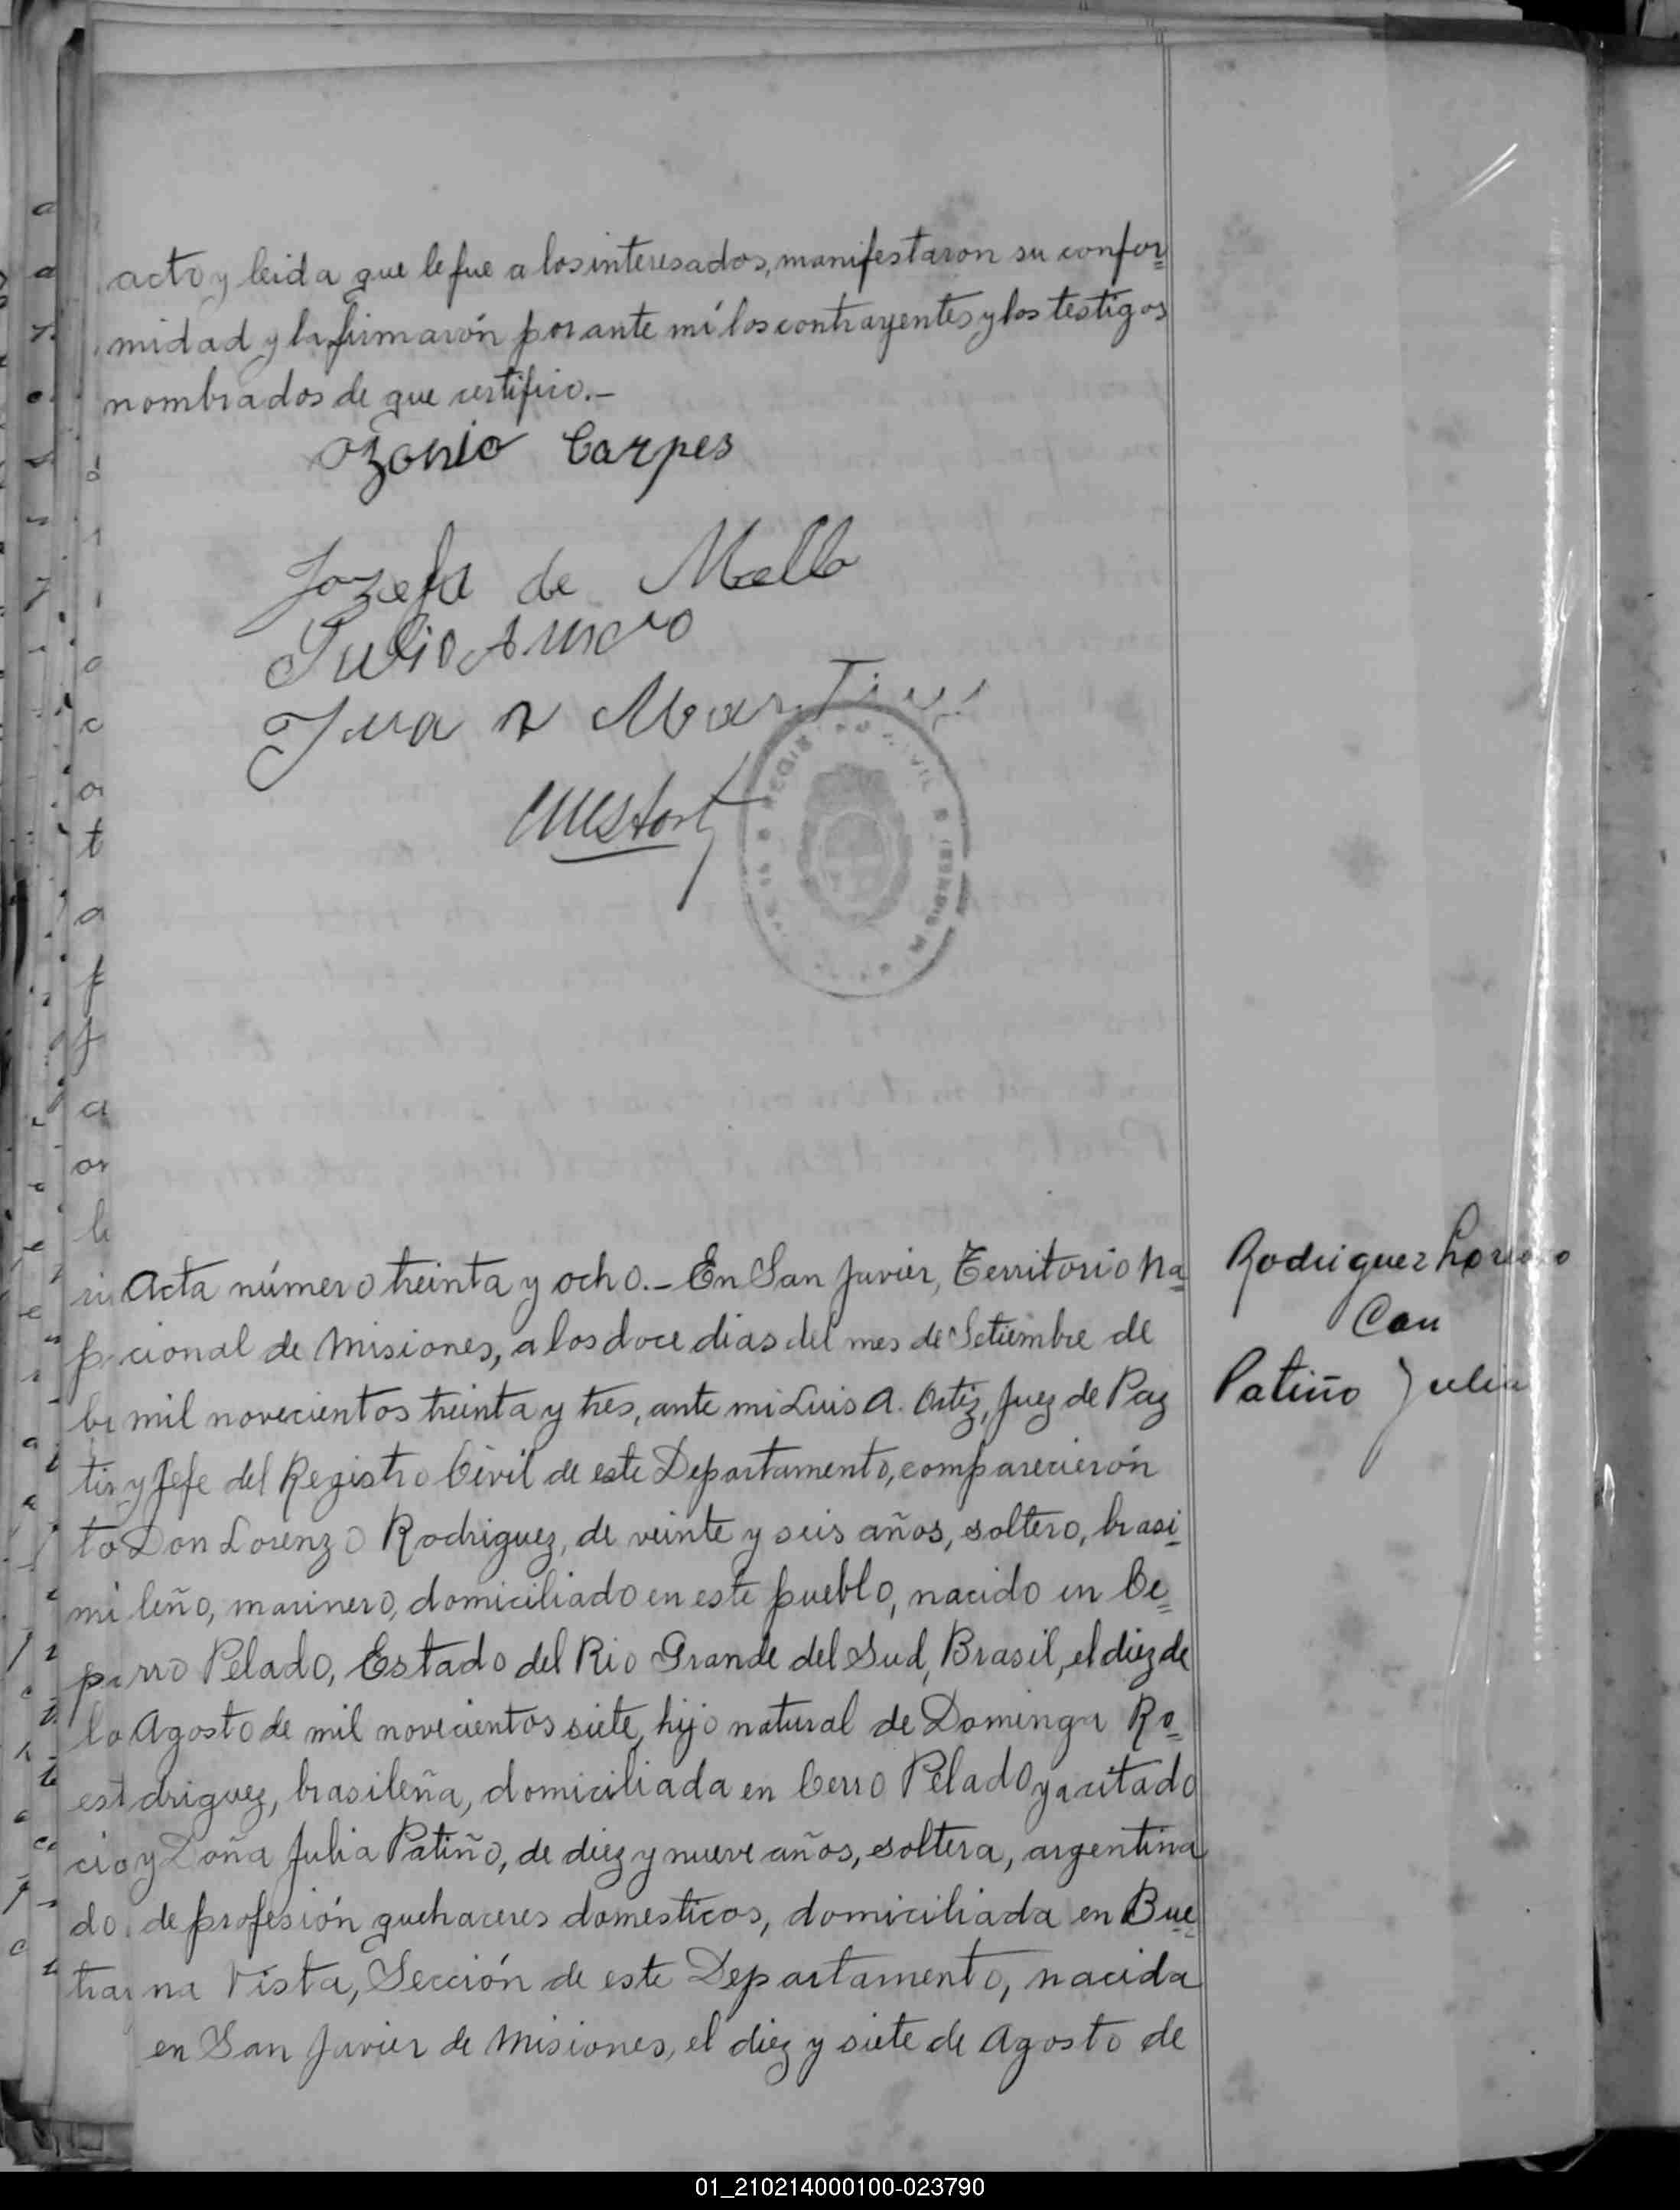 acto y leida que le fue a los interesados, manifestaron su confor=
midad y la firmarón por ante mí los contrayentes y los testigos
nombrados de que certifico.-
Ozonio Carpes
Jozefa de Mello
Julio
Juan Martinez
Acta número treinta y ocho.- En San Javier, Territorio Na=
cional de Misiones, a los doce dias del mes de Setiembre de
mil novecientos treinta y tres, ante mi Luis A. Ortiz, Juez de Paz
y Jefe del Registro Civil de este Departamento, comparecierón
Don Lorenzo Rodriguez, de veinte y seis años, soltero, brasi=
leño, marinero, domiciliado en este pueblo, nacido en Ce=
rro Pelado, Estado del Rio Grande del Sud, Brasil, el diez de
Agosto de mil novecientos siete, hijo natural de Dominga Ro=
driguez, brasileña, domiciliada en Cerro Pelado ya citado
y Doña Julia Patiño, de diez y nueve años, soltera, argentina
de profesión quehaceres domesticos, domiciliada en Bue=
na Vista, Sección de este Departamento, nacida
en San Javier de Misiones, el diez y siete de Agosto de
Rodriguez Lorenzo
Con
Patiño Julia
01_210214000100-023790